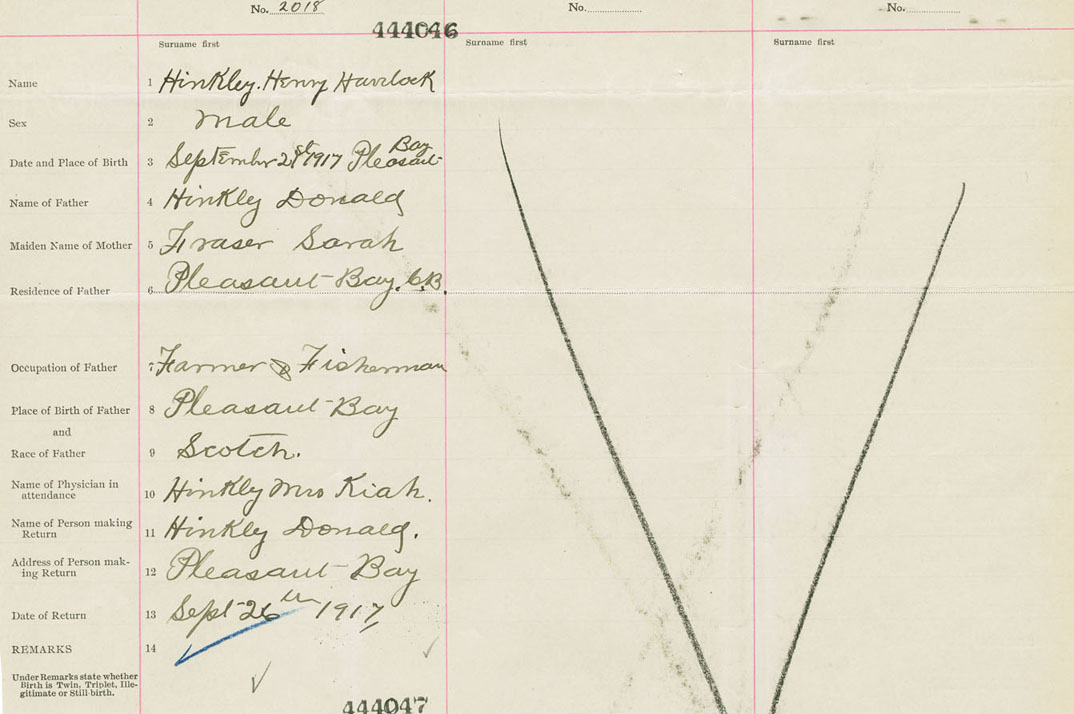 No. 2018 No. No.
444046
Surname first Surname first Surname first
Name 1 Hinkley. Henry Havelock
Sex 2 Male
Bay
Date and Place of Birth 3 September 21st 1917 Pleasant
Name of Father 4 Hinkly Donald
Maiden Name of Mother 5 Fraser Sarah
Residence of Father 6 Pleasant Bay. C.B.
Occupation of Father 7 Farmer & Fisherman
Place of Birth of Father 8 Pleasant Bay
and
Race of Father 9 Scotch.
Name of Physician in
attendance 10 Hinkly Mrs Kiah.
Name of Person making
Return 11 Hinkly Donald.
Address of Person mak-
ing Return 12 Pleasant Bay
Date of Return 13 Sept 26th 1917
REMARKS 14
Under Remarks state whether
Birth is Twin, Triplet, Ille-
gitimate or Still-birth.
444047